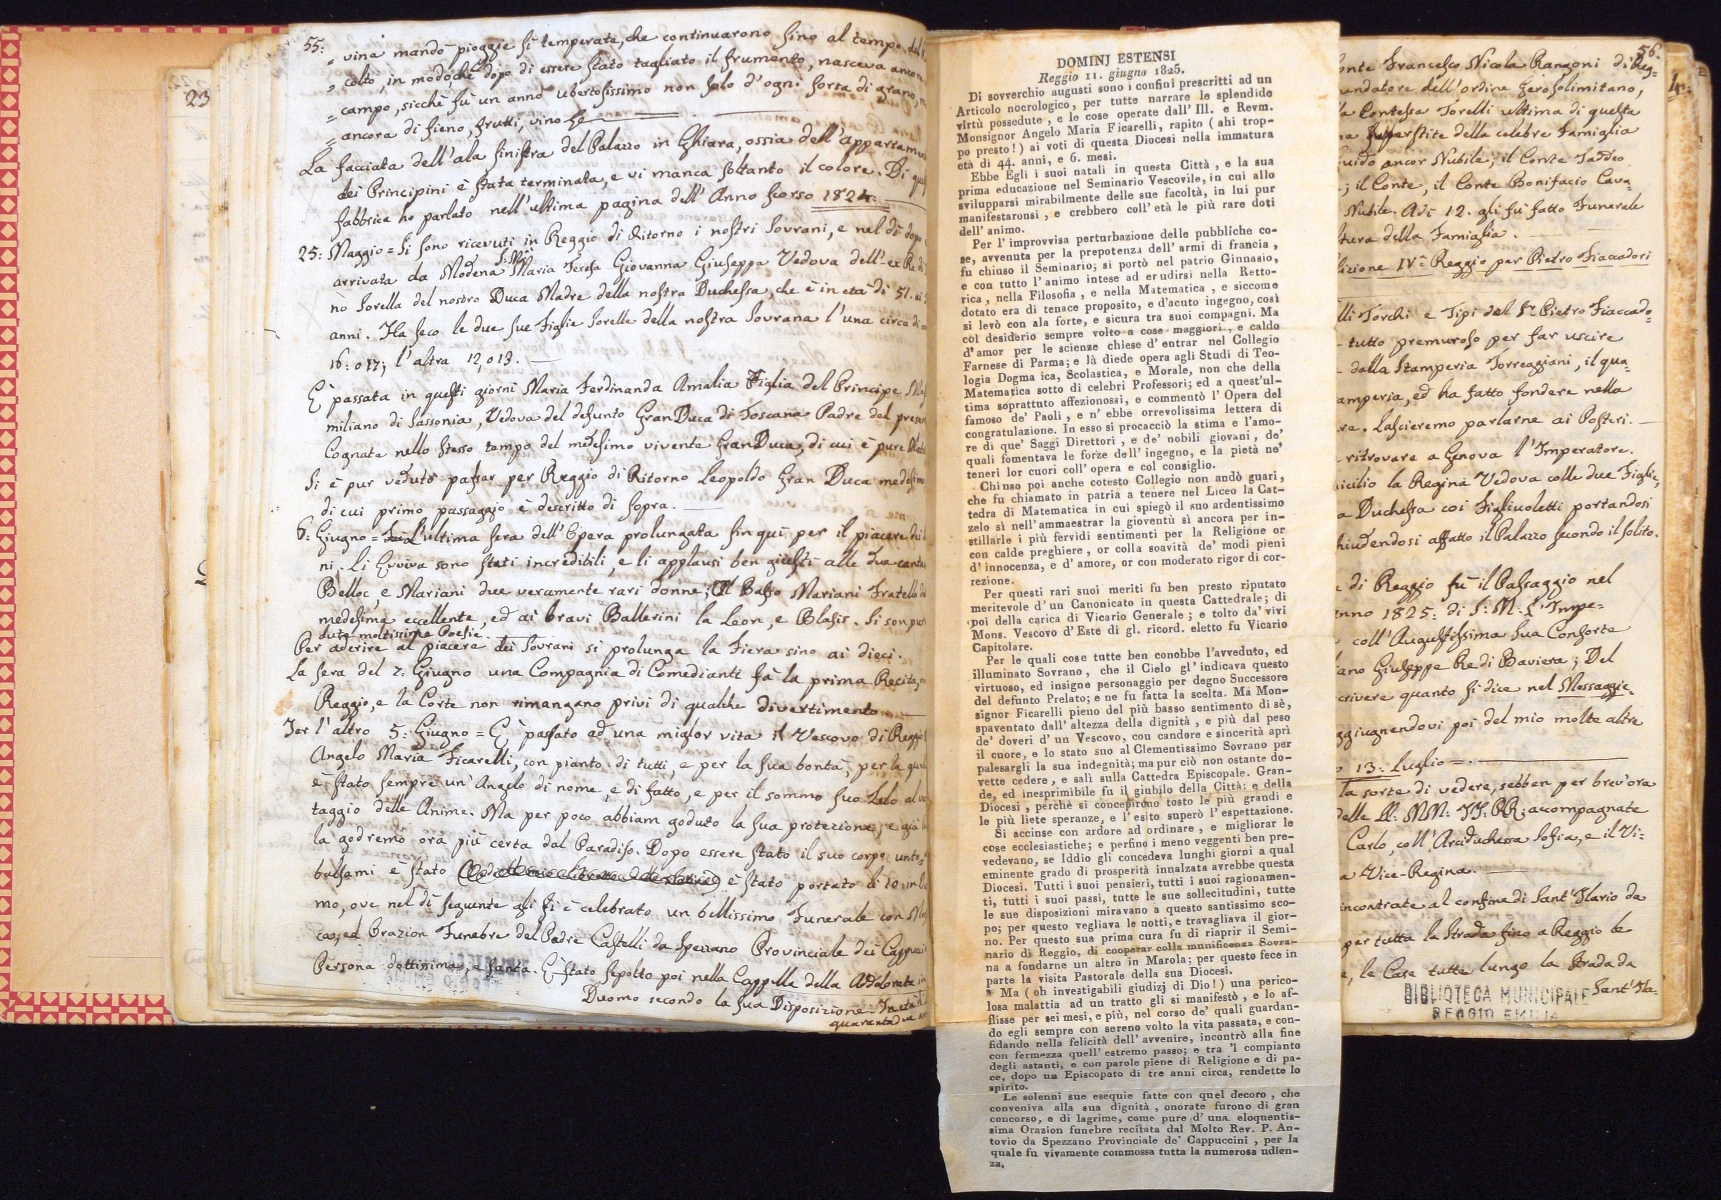 23
55:
vina mandò pioggie sì temperate, che continuarono fino al tempo del
colto, in modo, che dopo di essere stato tagliato il frumento, nasceva ancora
campo, sicchè fù un anno ubertosissimo non solo d'ogni sorta di grano,
ancora di fieno, frutti, vino
La facciata dell'ala sinistra del Palazzo in Ghiara, ossia dell'appartamen
dei Principini è stata terminata, e vi manca soltanto il colore. Di qu
fabbrica ho parlato nell'ultima pagina dell'Anno scorso 1824.
25: Maggio = Si sono ricevuti in Reggio di Ritorno i nostri Sovrani, e nel dì dopo
arrivata da Modena S: M: Maria Teresa Giovanna Giuseppa Vedova dell'ex Re di
no Sorella del nostro Duca Madre della nostra Duchessa, che è in età di 51.
anni. Ha seco le due sue Figlie Sorelle della nostra Sovrana l'una circa di
16: o 17; l'altra 12, o 13.
È passata in questi giorni Maria Ferdinanda Amalia Figlia del Principe Mas
miliano di Sassonia, Vedova del defunto GranDuca di Toscana Padre del prese
Cognata nello stesso tempo del medesimo vivente GranDuca, di cui è pure
Si è pur veduto passar per Reggio di Ritorno Leopoldo Gran Duca medesim
di cui primo passaggio è descritto di sopra.
6: Giugno = L'ultima sera dell'Opera prolungata fin qui per il piacere dei
ni. Li Evviva sono stati incredibili, e li applausi ben giusti alle due canta
Belloc e Mariani due veramente rari donne; Il Basso Mariani Fratello
medesima eccellente, ed ai bravi Ballerini la Leon, e Blasis. Si son pur
dute moltissime Poesie.
Per aderire al piacere dei Sovrani si prolunga la Fiera sino ai dieci.
La sera del 7: Giugno una Compagnia di Comedianti fà la prima Recita,
Reggio, e la Corte non rimangano privi di qualche divertimento
Ier l'altro 5: Giugno = È passato ad una miglor vita il Vescovo di Reggi
Angelo Maria Ficarelli, con pianto di tutti, e per la sua bontà, per la qua
è stato sempre un Angelo di nome, e di fatto, e per il sommo suo zelo al va
taggio delle Anime. Ma per poco abbiam goduto la sua protezione, e già
la godremo ora più certa dal Paradiso. Dopo essere stato il suo corpo unto
balsami è stato è stato portato li 10 in
mo, ove nel dì seguente gli si è celebrato un bellissimo Funerale con
ca, ed Orazion Funebre del Padre Castelli da Spezzano Provinciale dei Cappucc
Persona dottissima, e santa. È stato sepolto poi nella Cappella della Addolorata in
Duomo secondo la sua Disposizione.
DOMINJ ESTENSI
Reggio 11. giugno 1825.
Di sovverchio augusti sono i confini prescritti ad un
Articolo nocrologico, per tutte narrare le splendide
virtù possedute, e le cose operate dall' Ill. e Revm.
Monsignor Angelo Maria Ficarelli, rapito (ahi trop-
po presto!) ai voti di questa Diocesi nella immatura
età di 44. anni, e 6. mesi.
Ebbe Egli i suoi natali in questa Città, e la sua
prima educazione nel Seminario Vescovile, in cui allo
svilupparsi mirabilmente delle sue facoltà, in lui pur
manifestaronsi, e crebbero coll' età le più rare doti
dell' animo.
Per l' improvvisa perturbazione delle pubbliche co-
se, avvenuta per la prepotenza dell' armi di francia,
fu chiuso il Seminario; si portò nel patrio Ginnasio,
e con tutto l' animo intese ad erudirsi nella Retto-
rica, nella Filosofia, e nella Matematica, e siccome
dotato era di tenace proposito, e d'acuto ingegno, così
si levò con ala forte, e sicura tra suoi compagni. Ma
col desiderio sempre volto a cose maggiori, e caldo
d'amor per le scienze chiese d' entrar nel Collegio
Farnese di Parma; e là diede opera agli Studi di Teo-
logia Dogma ica, Scolastica, e Morale, non che della
Matematica sotto di celebri Professori; ed a quest'ul-
tima soprattuto affezionossi, e commentò l' Opera del
famoso de' Paoli, e n' ebbe orrevolissima lettera di
congratulazione. In esso si procacciò la stima e l'amo-
re di que' Saggi Direttori, e de' nobili giovani, de'
quali fomentava le forze dell' ingegno, e la pietà no'
teneri lor cuori coll' opera e col consiglio.
Chiuso poi anche cotesto Collegio non andò guari,
che fu chiamato in patria a tenere nel Liceo la Cat-
tedra di Matematica in cui spiegò il suo ardentissimo
zelo sì nell'ammaestrar la gioventù sì ancora per in-
stillarle i più fervidi sentimenti per la Religione or
con calde preghiere, or colla soavità de' modi pieni
d' innocenza, e d' amore, or con moderato rigor di cor-
rezione.
Per questi rari suoi meriti fu ben presto riputato
meritevole d' un Canonicato in questa Cattedrale; di
poi della carica di Vicario Generale; e tolto da' vivi
Mons. Vescovo d'Este di gl. ricord. eletto fu Vicario
Capitolare.
Per le quali cose tutte ben conobbe l'avveduto, ed
illuminato Sovrano, che il Cielo gl' indicava questo
virtuoso, ed insigne personaggio per degno Successore
del defunto Prelato; e ne fu fatta la scelta. Ma Mon-
signor Ficarelli pieno del più basso sentimento di sè,
spaventato dall'altezza della dignità, e più dal peso
de' doveri d' un Vescovo, con candore e sincerità aprì
il cuore, e lo stato suo al Clementissimo Sovrano per
palesargli la sua indegnità; ma pur ciò non ostante do-
vette cedere, e salì sulla Cattedra Episcopale. Gran-
de, ed inesprimibile fu il giubilo della Città; e della
Diocesi, perchè si concepirono tosto le più grandi e
le più liete speranze, e l'esito superò l'espettazione.
Si accinse con ardore ad ordinare, e migliorare le
cose ecclesiastiche; e perfino i meno veggenti ben pre-
vedevano, se Iddio gli concedeva lunghi giorni a qual
eminente grado di prosperità innalzata avrebbe questa
Diocesi. Tutti i suoi pensieri, tutti i suoi ragionamen-
ti, tutti i suoi passi, tutte le sue sollecitudini, tutte
le sue disposizioni miravano a questo santissimo sco-
po; per questo vegliava le notti, e travagliava il gior-
no. Per questo sua prima cura fu di riaprir il Semi-
nario di Reggio, di cooperar colla munificenza Sovra-
na a fondarne un altro in Marola; per questo fece in
parte la visita Pastorale della sua Diocesi.
Ma (oh investigabili giudizj di Dio!) una perico-
losa malattia ad un tratto gli si manifestò, e lo af-
flisse per sei mesi, e più, nel corso de' quali guardan-
do egli sempre con sereno volto la vita passata, e con-
fidando nella felicità dell' avvenire, incontrò alla fine
con fermezza quell' estremo passo; e tra 'l compianto
degli astanti, e con parole piene di Religione e di pa-
ce, dopo un Episcopato di tre anni circa, rendette lo
spirito.
Le solenni sue esequie fatte con quel decoro, che
conveniva alla sua dignità, onorate furono di gran
concorso, e di lagrime, come pure d' una eloquentis-
sima Orazion funebre recitata dal Molto Rev. P. An-
tovio da Spezzano Provinciale de' Cappuccini, per la
quale fu vivamente commossa tutta la numerosa udien-
za.
56.
onte Francesco Nicola Rangoni di Reg=
mandatore dell'ordine Gerosolimitano,
la Contessa Torelli ultima di questa
na superstite della celebre Famiglia
Guido ancor Nubile; il Conte Taddeo
; il Conte, il Conte Bonifacio Cava=
Nubile. Adì 12. gli fù fatto Funerale
tura della Famiglia.
dizione IV: Reggio per Pietro Fiaccadori
lli Torchi e Tipi del Sr. Pietro Fiaccado=
tutto premuroso per far uscire
dalla Stamperia Torreggiani, il qua=
amperia, ed ha fatto fondere nella
re. Lascieremo parlarne ai Posteri.
ritrovare a Genova l'Imperatore.
icilio la Regina Vedova colle due Figlie,
a Duchessa coi Figliuoletti portandosi
hiudendosi affatto il Palazzo secondo il solito.
di Reggio fù il Passaggio nel
nno 1825: di S: M: L'Impe=
coll'Augustissima sua Consorte
ano Giuseppe Re di Baviera; Del
crivere quanto si dice nel Messaggie.
ggiugnendovi poi del mio molte altre
13: Luglio =
la sorte di vedere, sebben per brev'ora
delle LL: MM: II: RR: accompagnate
Carlo, coll'Arciduchessa Sofia, e il Vi=
a Vice-Regina.
incontrate al confine di Sant'Ilario da
per tutta la Strada fino a Reggio le
e, le Case tutte lungo la Strada da
Sant'Ila=
BIBLIOTECA MUNICIPALE
REGGIO EMILIA